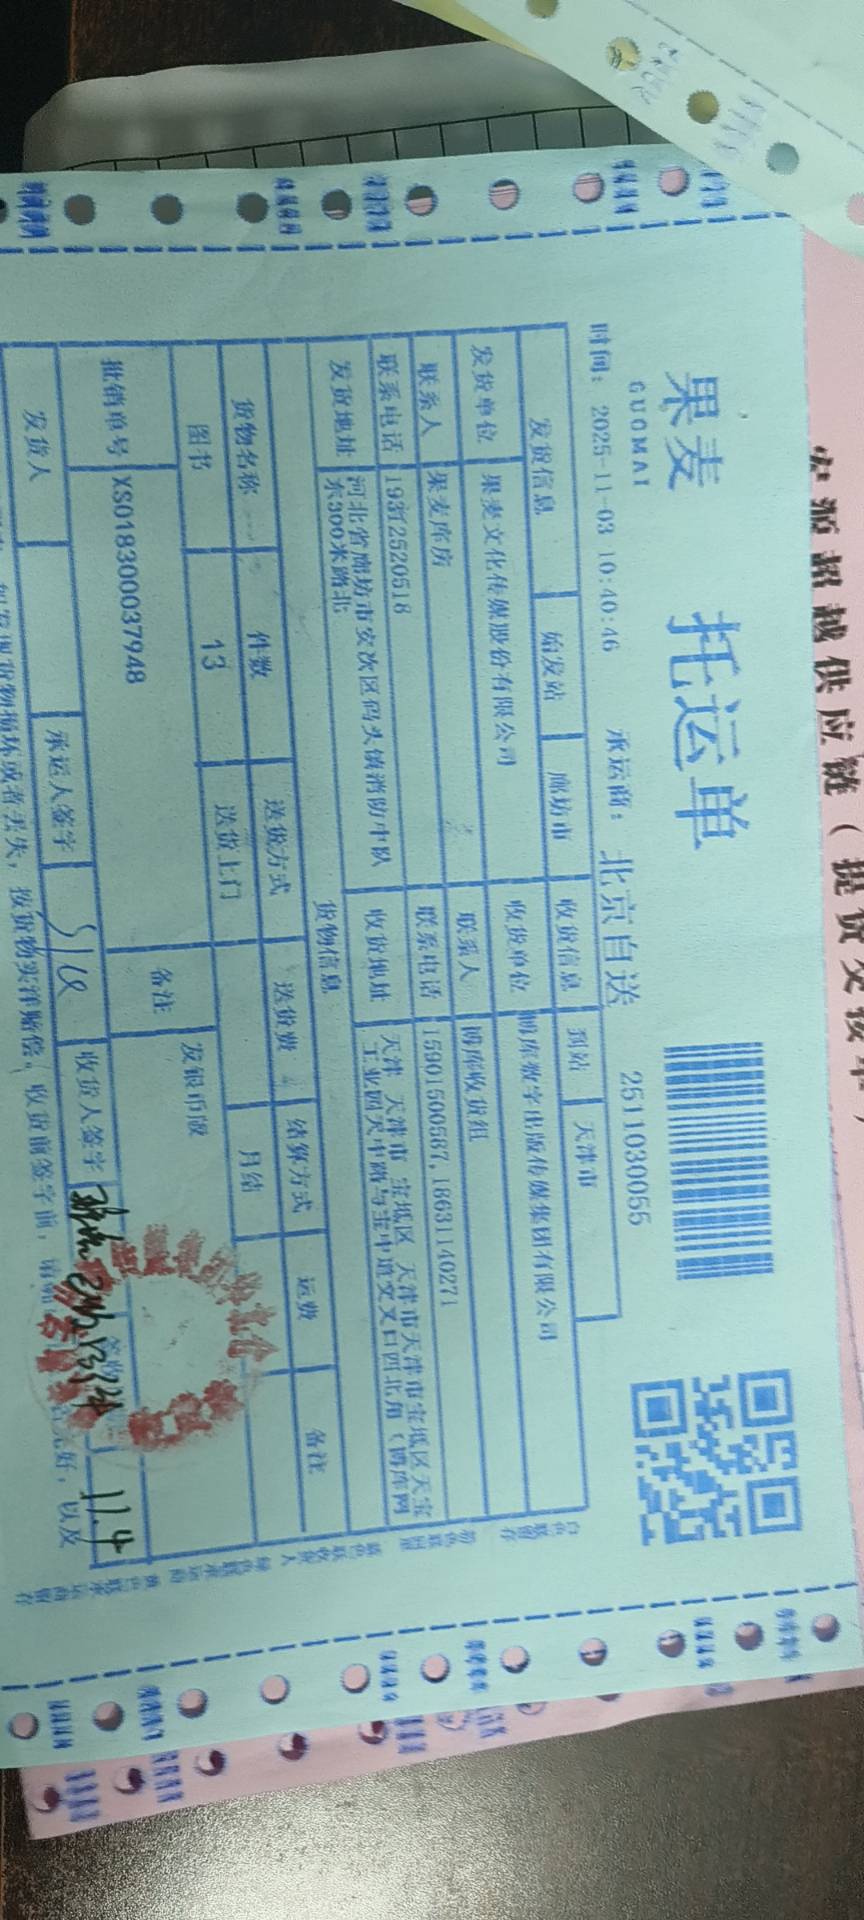 果麦
GUOMAI
托运单
时间: 2025-11-03 10:40:46 承运商: 北京自送 2511030055
发货信息 始发站 廊坊市 收货信息 到站 天津市
发货单位 果麦文化传媒股份有限公司 收货单位 博库数字出版传媒集团有限公司
联系人 果麦库房 联系人 博库收货组
联系电话 19312520518 联系电话 15901500587,18631140271
发货地址 河北省廊坊市安次区码头镇消防中队
东300米路北
收货地址 天津 天津市 宝坻区 天津市天津市宝坻区天宝
工业园天中路与宝中道交叉口西北角(博库网
货物信息
货物名称 件数 送货方式 送货费 结算方式 运费 备注
图书 13 送货上门 月结
批销单号 XS018300037948 备注
发货人 承运人签字 收货人签字 11.4
如发现货物损坏或者丢失, 按货物实洋赔偿, 收货前签字前,
完好, 以及
宏源超越供应链(提货交接单)